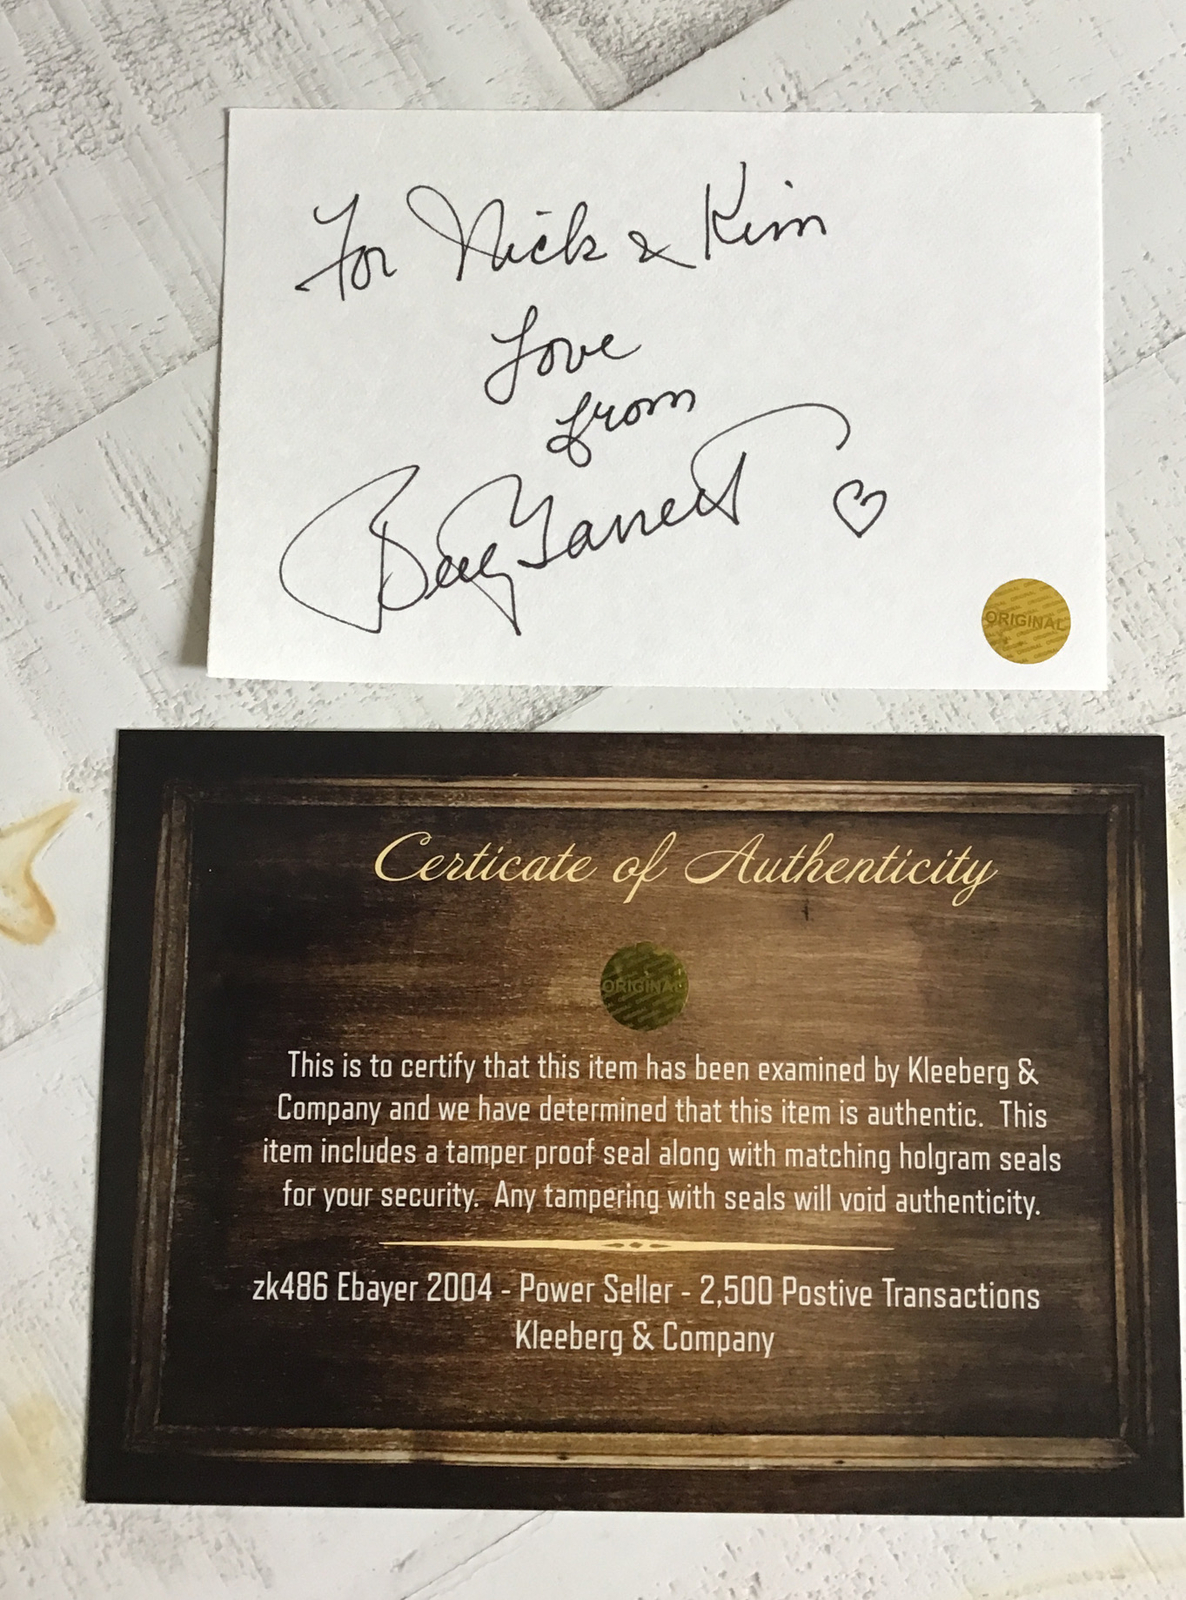 For Nick & Kim
Love
from
Betty Garrett
ORIGINAL
Certicate of Authenticity
ORIGINAL
This is to certify that this item has been examined by Kleeberg &
Company and we have determined that this item is authentic. This
item includes a tamper proof seal along with matching holgram seals
for your security. Any tampering with seals will void authenticity.
zk486 Ebayer 2004 - Power Seller - 2,500 Postive Transactions
Kleeberg & Company